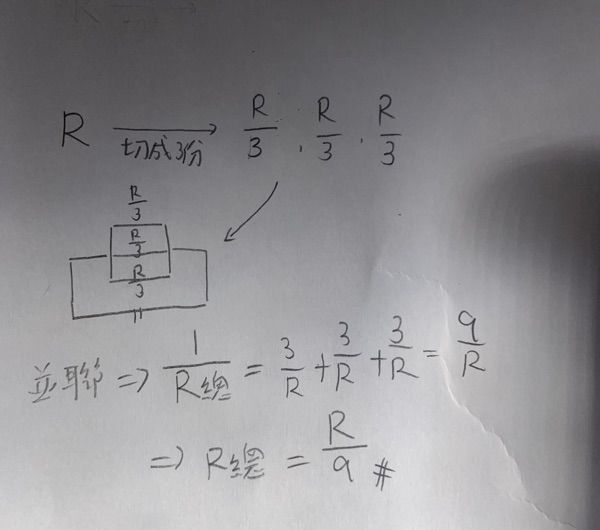 R 切成3份 R/3 . R/3 . R/3
R/3
R/3
R/3
並聯 => 1/R總 = 3/R + 3/R + 3/R = 9/R
=> R總 = R/9 #